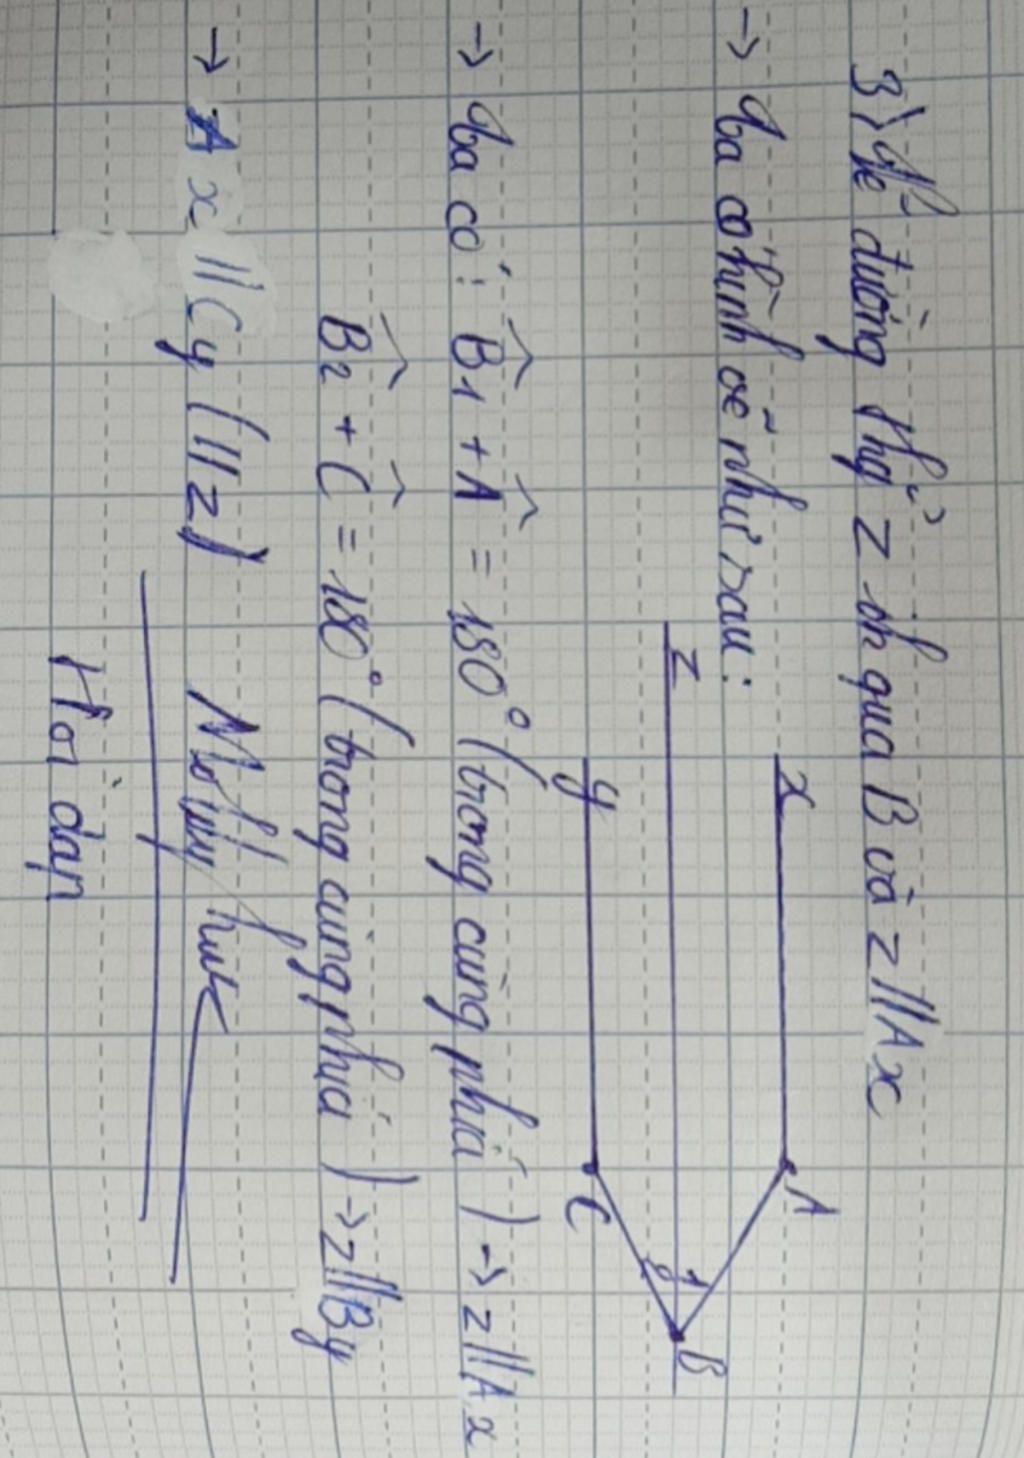 3) Kẻ đường thẳng z đi qua B và z // Ax
→ Ta có hình vẽ như sau:
x A
z 1 B
y C
→ Ta có: B̂1 + Â = 180° (trong cùng phía) → z // Ax
B̂2 + Ĉ = 180° (trong cùng phía) → z // By
→ Ax // Cy (// z)